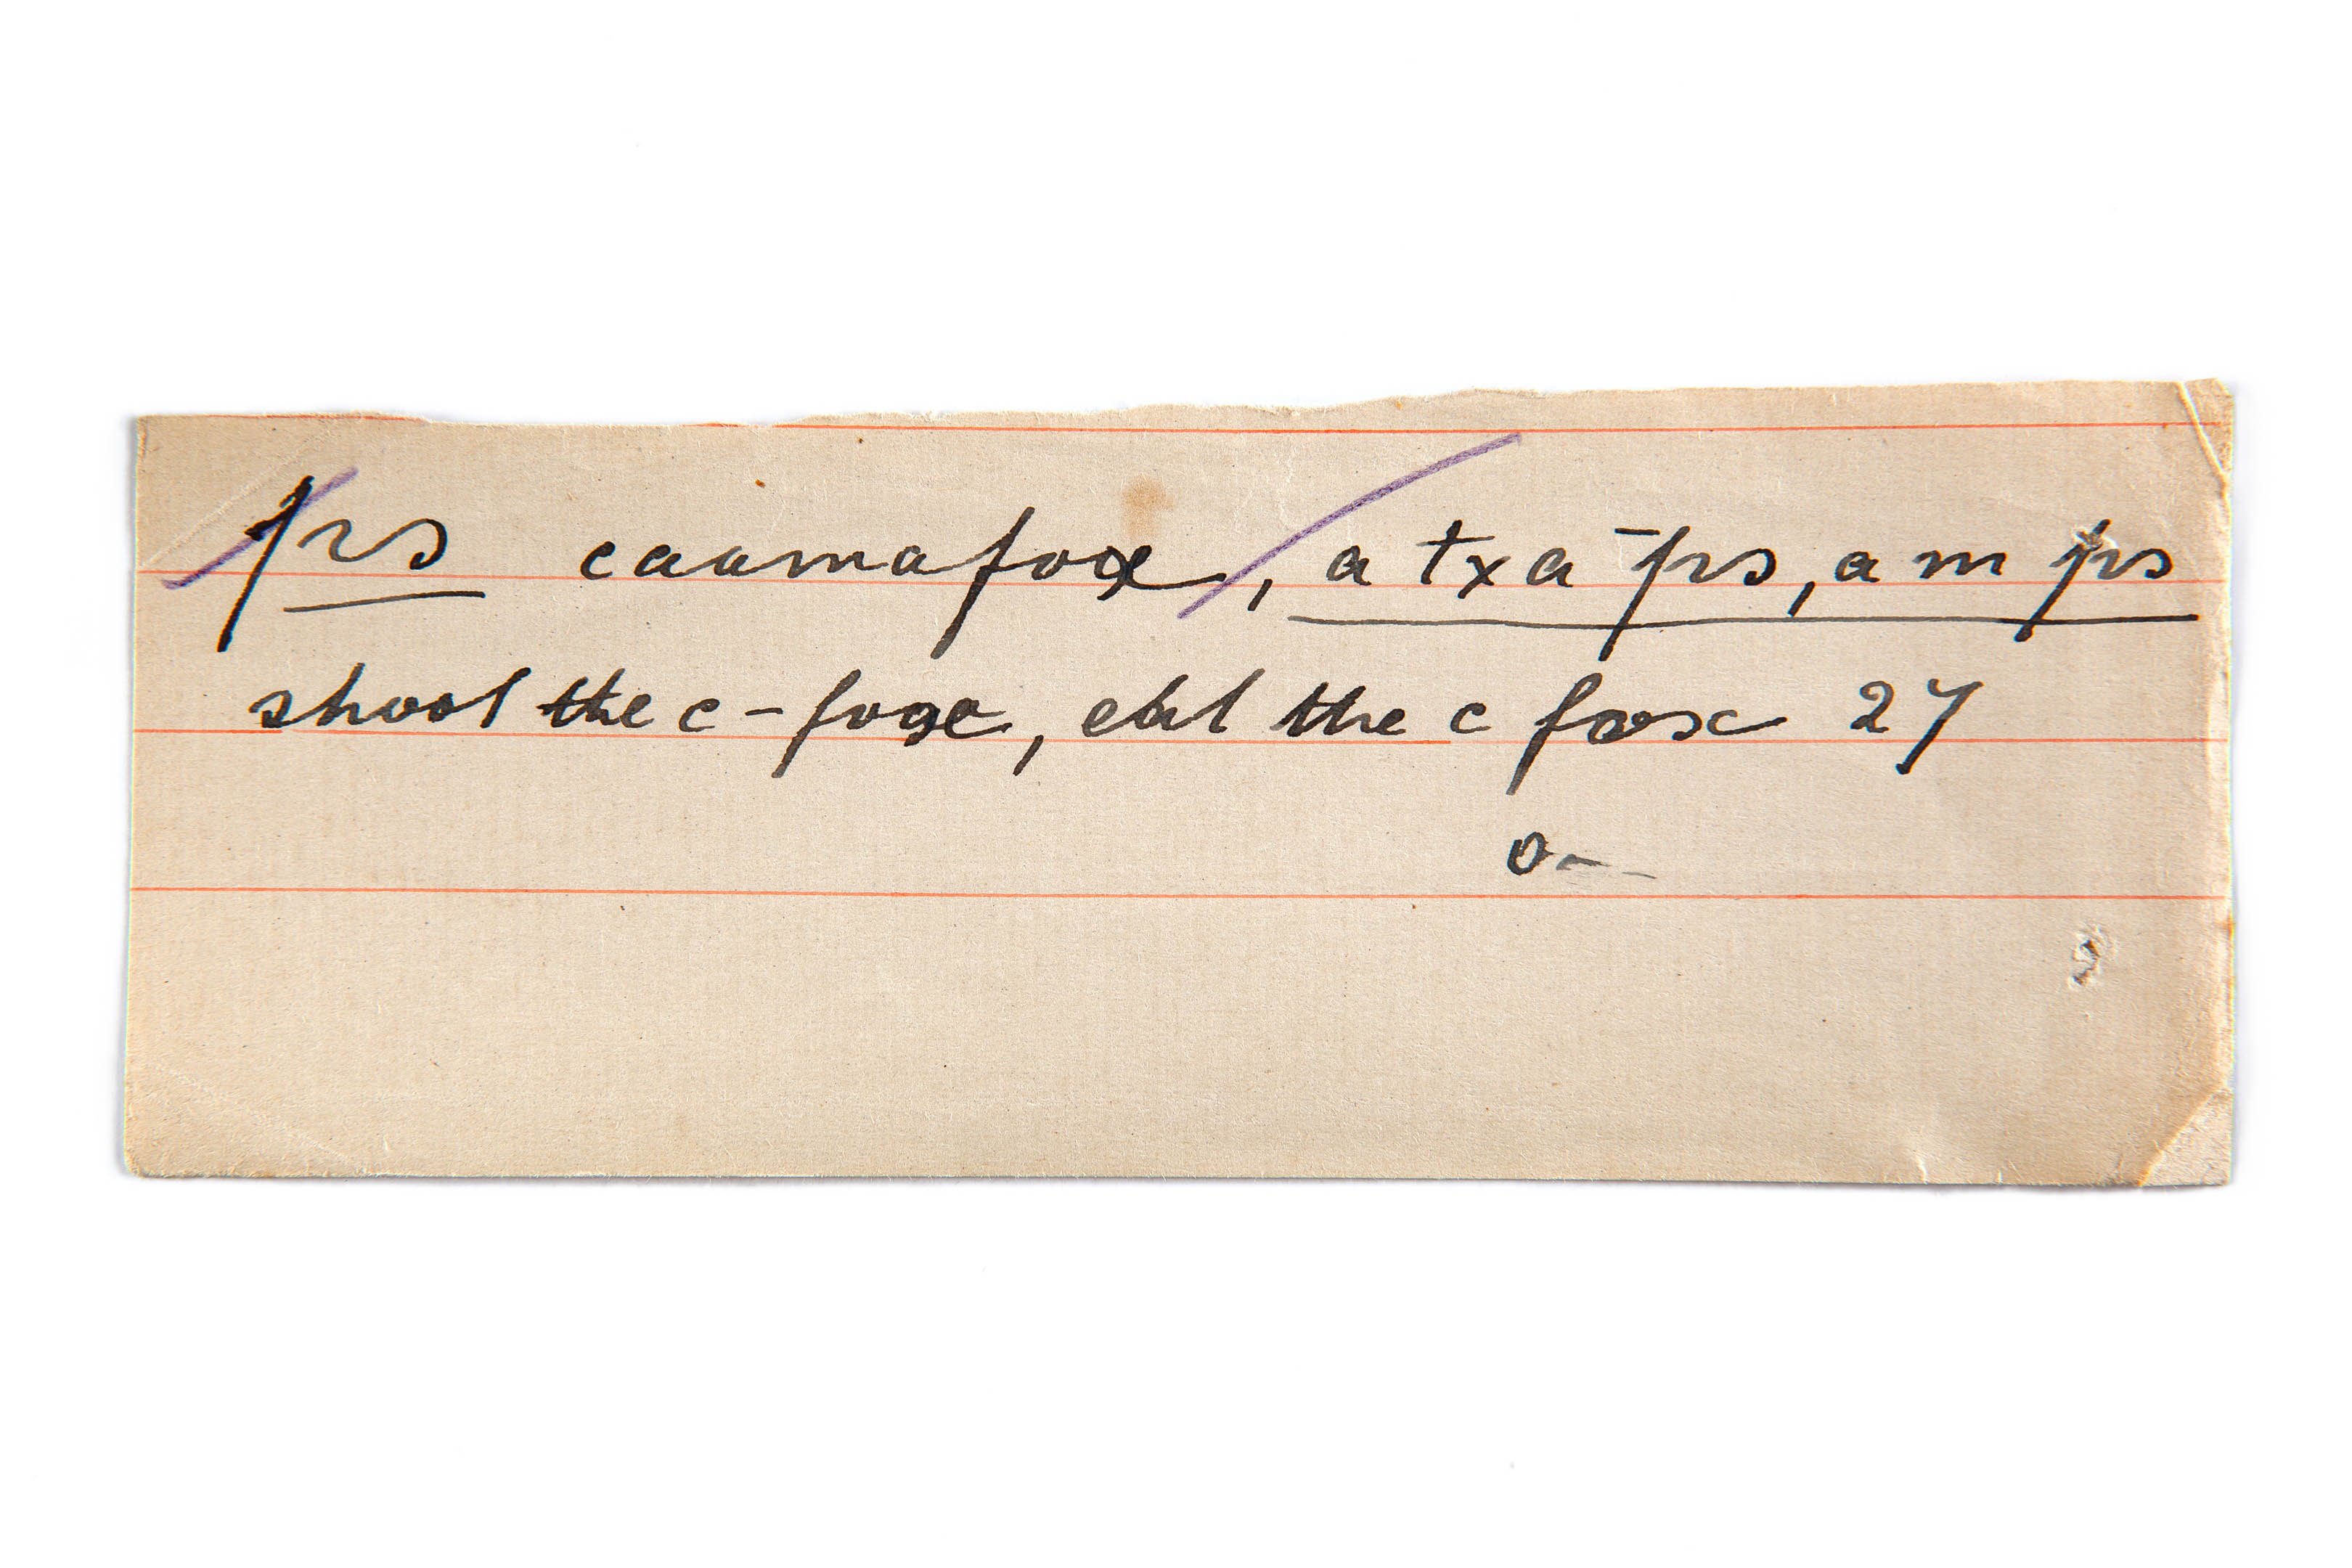 prs caamafox, a txa-prs, a m prs
shoot the c-foxe, eat the c fox 27
o--